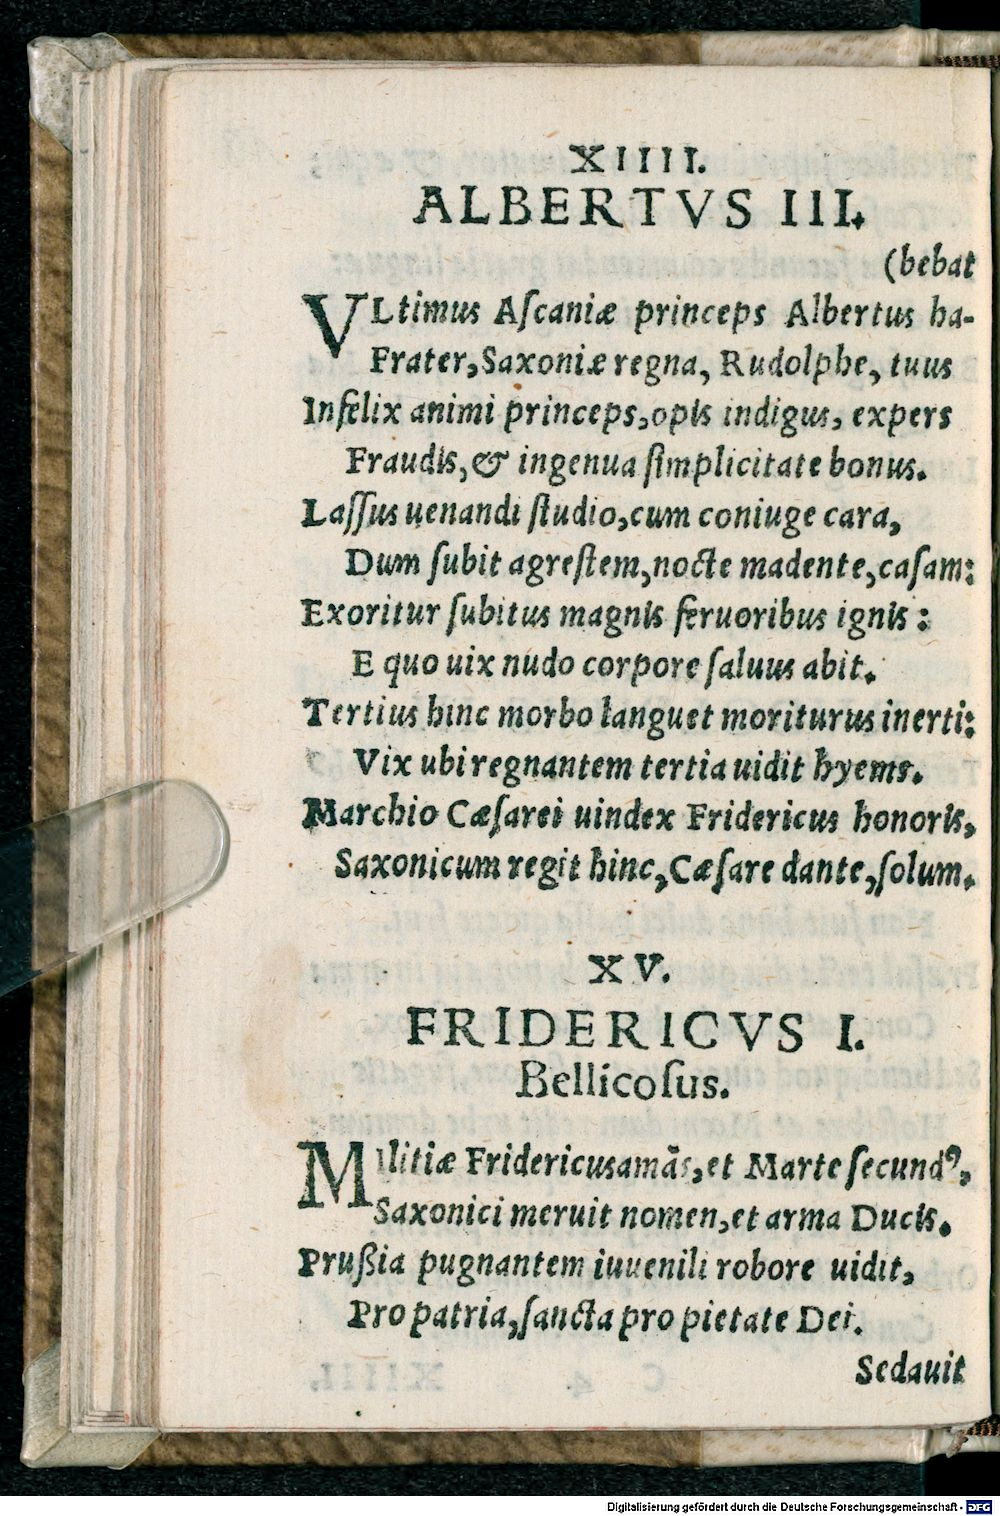 XIIII.
ALBERTVS III.
(bebat
VLtimus Aſcaniæ princeps Albertus ha-
Frater, Saxoniæ regna, Rudolphe, tuus
Infelix animi princeps, opis indigus, expers
Fraudis, & ingenua ſimplicitate bonus.
Laſſus uenandi ſtudio, cum coniuge cara,
Dum ſubit agreſtem, nocte madente, caſam:
Exoritur ſubitus magnis feruoribus ignis:
E quo uix nudo corpore ſaluus abit.
Tertius hinc morbo languet moriturus inerti:
Vix ubi regnantem tertia uidit hyems.
Marchio Cæſarei uindex Fridericus honoris,
Saxonicum regit hinc, Cæſare dante, ſolum.
XV.
FRIDERICVS I.
Bellicoſus.
Militiæ Fridericus amãs, et Marte ſecundꝰ,
Saxonici meruit nomen, et arma Ducis.
Prußia pugnantem iuuenili robore uidit,
Pro patria, ſancta pro pietate Dei.
Sedauit
Digitalisierung gefördert durch die Deutsche Forschungsgemeinschaft - DFG